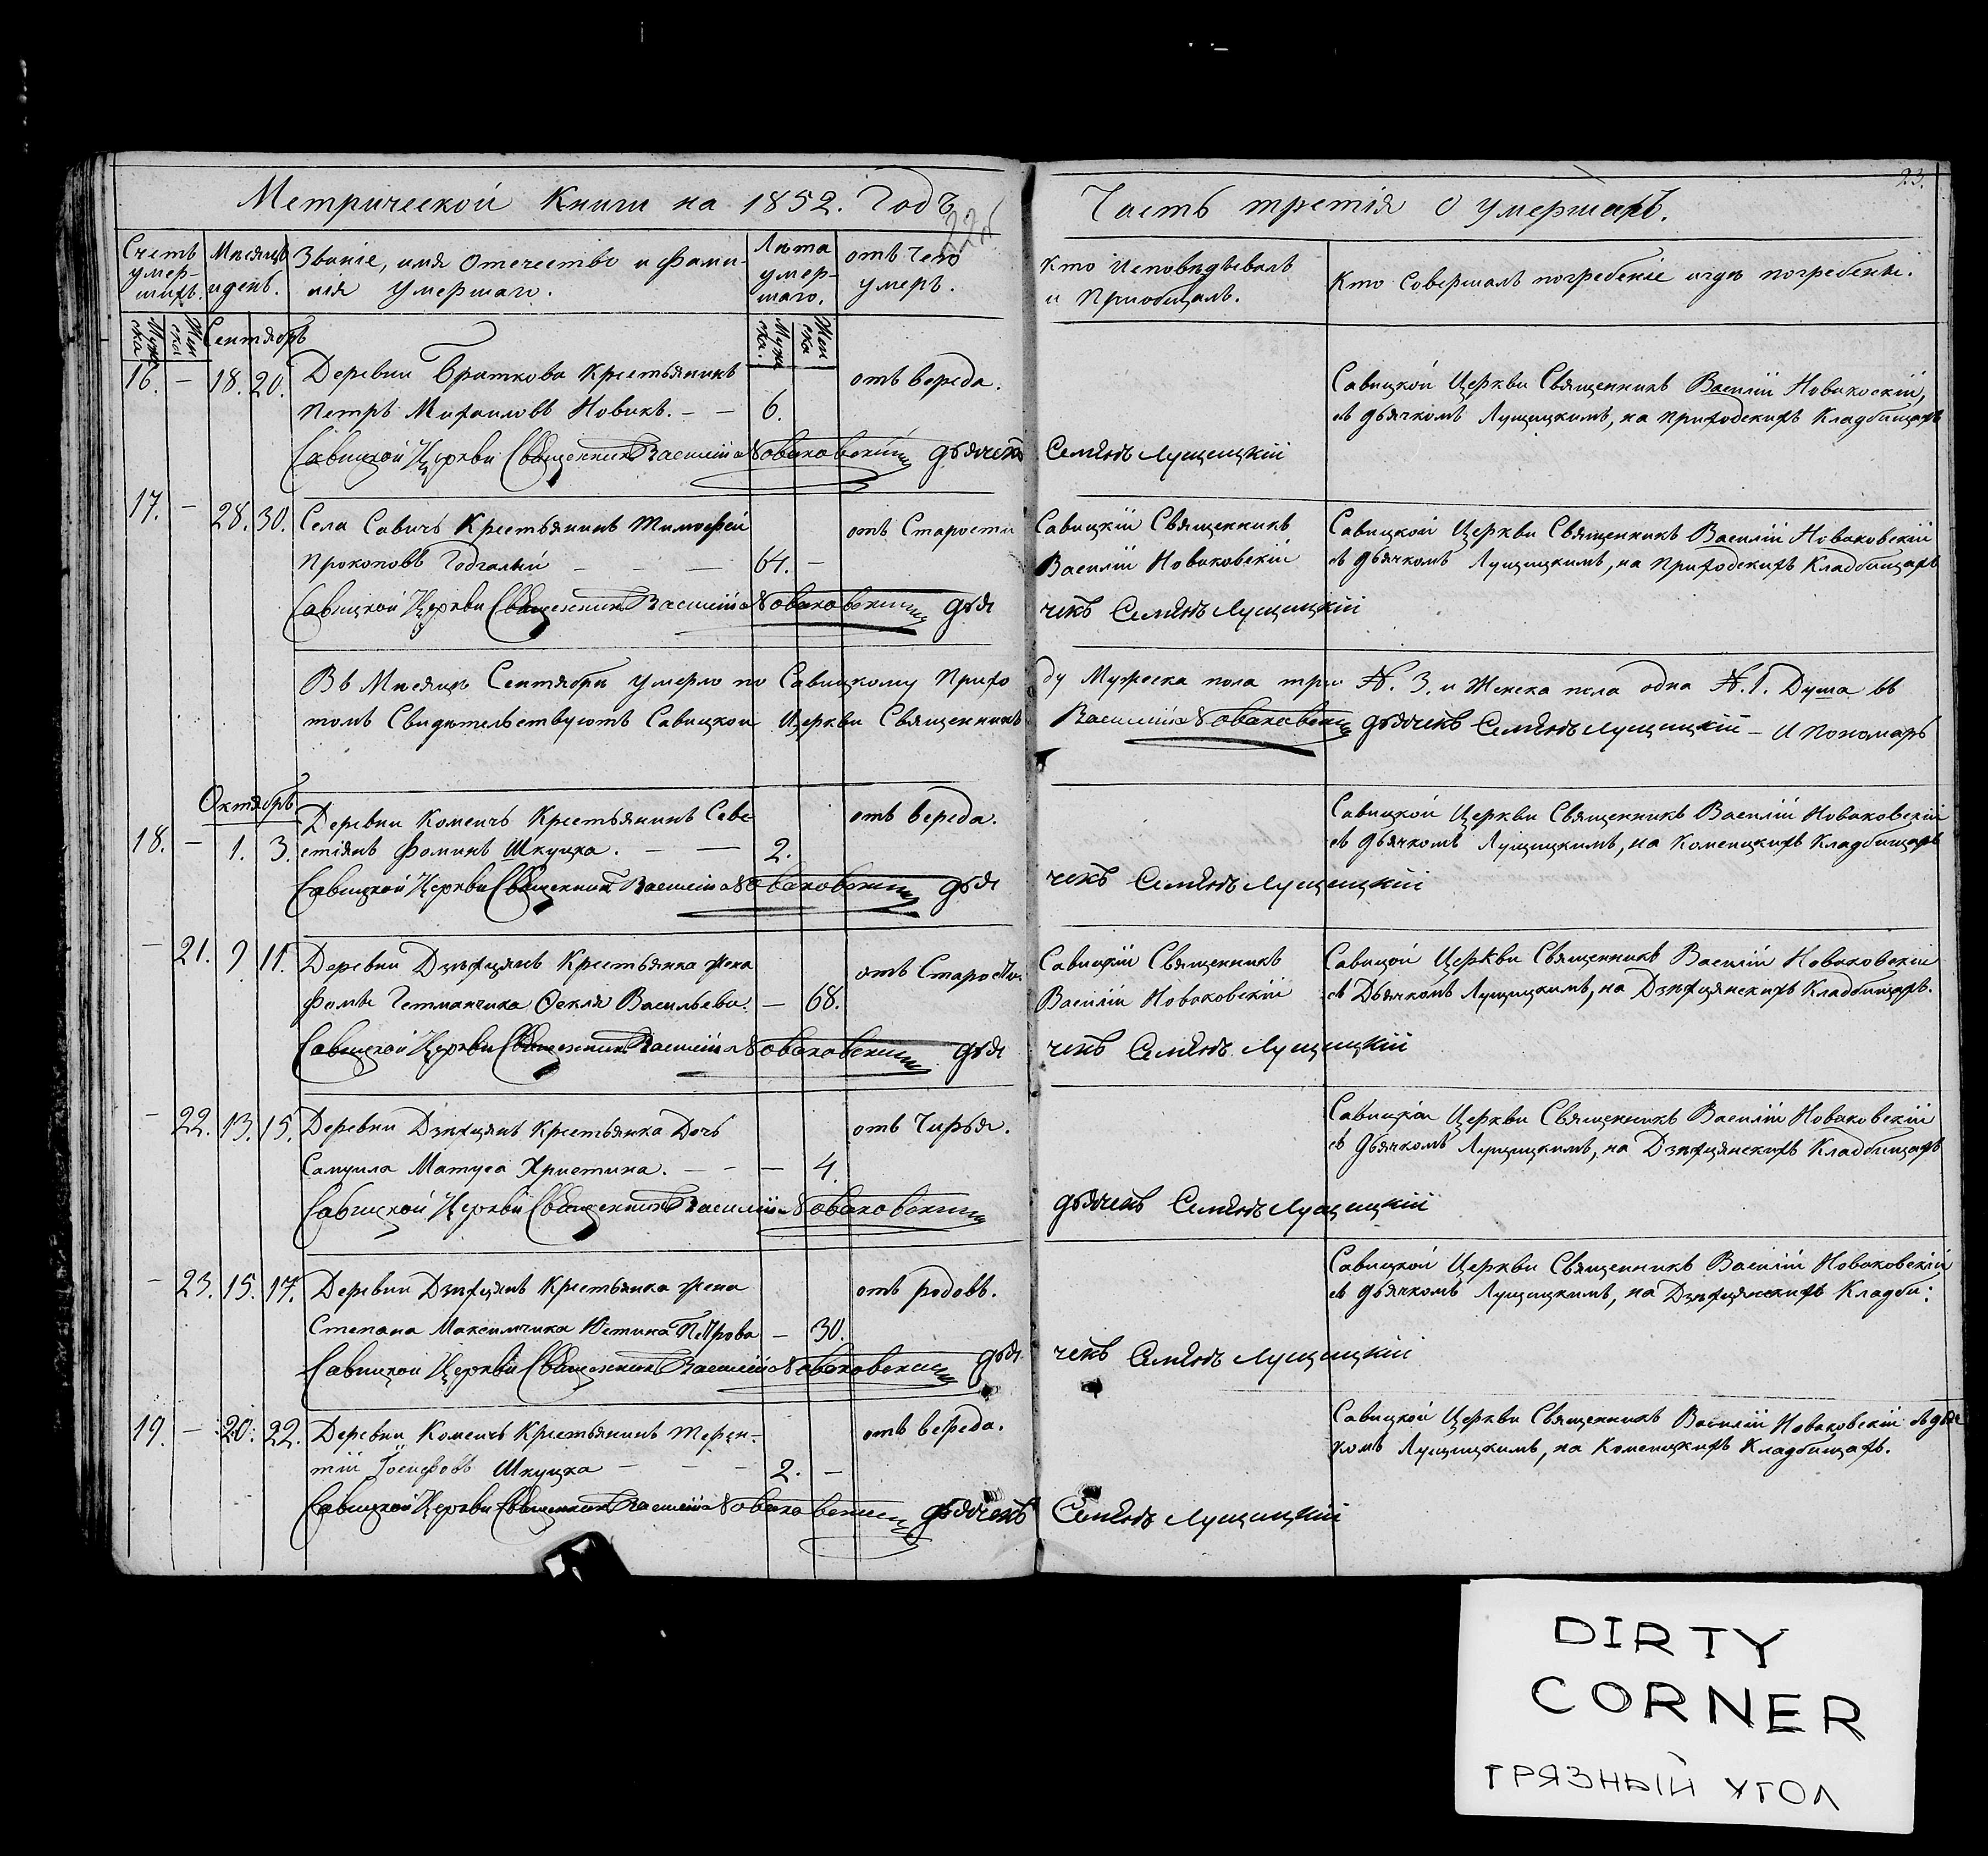 Метрической Книги на 1852. Годъ
22об
Счетъ умер-шихъ.
Мѣсяцъ и день.
Званіе, имя Отечество и фами-
лія Умершаго.
Лѣта умер-шаго.
отъ Чего умеръ.
Муж ска
Жен ска
Сентябрь
Муж ска.
Жен ска
16. — 18. 20. Деревни Браткова Крестьянинъ
отъ вереда.
Петръ Михаиловъ Новикъ. — — 6.
Савицкой Церкви Священникъ Василій Новаковскій дьячекъ
17. — 28. 30. Села Савичъ Крестьянинъ Тимофей
отъ Старости
Прокоповъ Годгалый — — — 64. —
Савицкой Церкви Священникъ Василій Новаковскій дья
Въ Мѣсяцѣ Сентябрѣ умерло по Савицкому Прихо
томъ Свидѣтельствуютъ Савицкой Церкви Священникъ
Октябрь
Деревни Комсичъ Крестьянинъ Севе
отъ вереда.
18. — 1. 3. стіянъ Фоминъ Шкуцка. — — 2.
Савицкой Церкви Священникъ Василій Новаковскій дья
— 21. 9 11. Деревни Дзѣхцянъ Крестьянка жена
отъ Старости.
Фомы Гетманчика Фекля Васильева. — 68.
Савицкой Церкви Священникъ Василій Новаковскій дья
— 22. 13. 15. Деревни Дзѣхцянъ Крестьянка Дочь
отъ Чирья.
Самуила Матуса Христина. — — — 4.
Савицкой Церкви Священникъ Василій Новаковскій
— 23. 15. 17. Деревни Дзѣхцянъ Крестьянка жена
отъ родовъ.
Степана Максимчика Юстина Петрова — 30.
Савицкой Церкви Священникъ Василій Новаковскій дья
19. — 20. 22. Деревни Комсичъ Крестьянинъ Терен-
отъ вереда.
тій Іосифовъ Шкуцка — — — 2. —
Савицкой Церкви Священникъ Василій Новаковскій дьячекъ
23.
Часть третія О умершихъ.
Кто Исповѣдывалъ
и Пріобщалъ.
Кто Совершалъ погребеніе и гдѣ погребены.
Савицкой Церкви Священникъ Василій Новаковскій,
съ дьячкомъ Лущицкимъ, на приходскихъ Кладбищахъ
Семіонъ Лущицкій
Савицкій Священникъ
Василій Новаковскій
Савицкой Церкви Священникъ Василій Новаковскій
съ дьячкомъ Лущицкимъ, на Приходскихъ Кладбищахъ
чекъ Семіонъ Лущицкій
ду Мужеска пола три №. 3. и Женска пола одна №. 1. Душа въ
Василій Новаковскій дьячекъ Семіонъ Лущицкій — И Пономарь
Савицкой Церкви Священникъ Василій Новаковскій
съ дьячкомъ Лущицкимъ, на Комсицкихъ Кладбищахъ
чекъ Семіонъ Лущицкій
Савицкій Священникъ
Василій Новаковскій
Савицой Церкви Священникъ Василій Новаковскій
съ Дьячкомъ Лущицкимъ, на Дзѣхцянскихъ Кладбищахъ.
чекъ Семіонъ Лущицкій
Савицкой Церкви Священникъ Василій Новаковскій
съ дьячкомъ Лущицкимъ, на Дзѣхцянскихъ Кладбищахъ
дьячекъ Семіонъ Лущицкій
Савицкой Церкви Священникъ Василій Новаковскій
съ дьячкомъ Лущицкимъ, на Дзѣхцянскихъ Кладби:
чекъ Семіонъ Лущицкій
Савицкой Церкви Священникъ Василій Новаковскій съ дьяч
комъ Лущицкимъ, на Комсицкихъ Кладбищахъ.
Семіонъ Лущицкій
DIRTY
CORNER
ГРЯЗНЫЙ УГОЛ